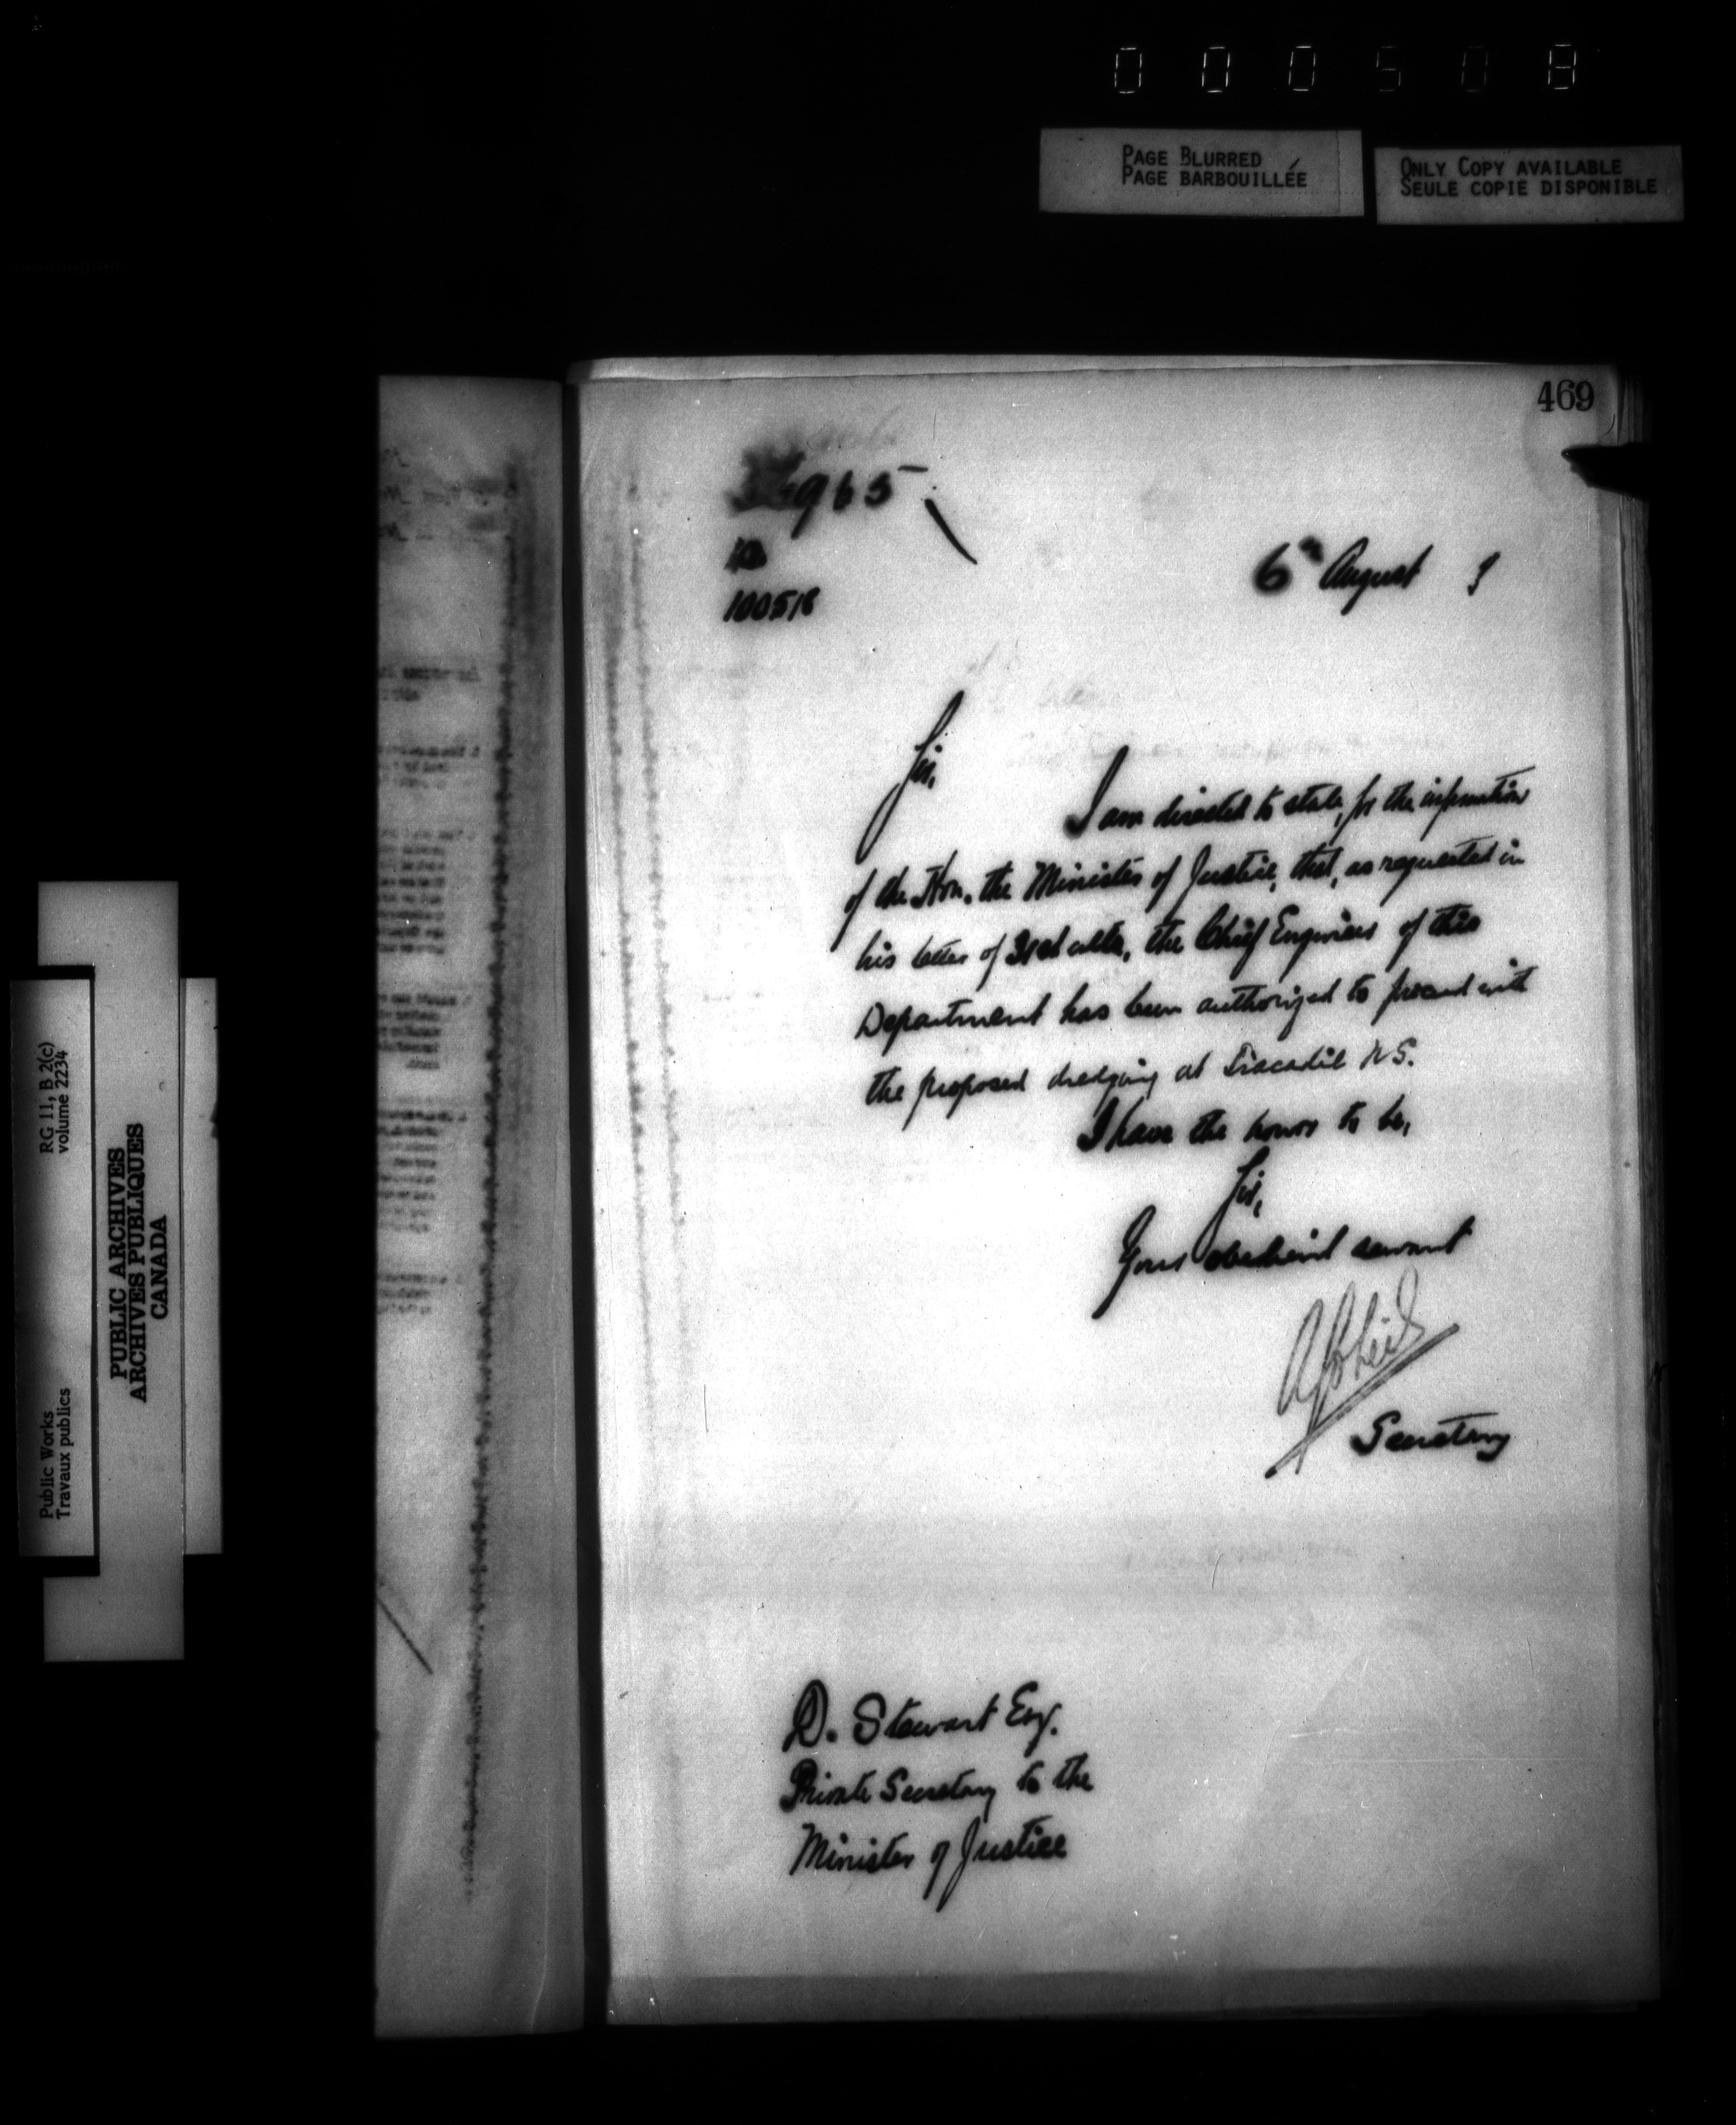 000508
PAGE BLURRED
PAGE BARBOUILLÉE
ONLY COPY AVAILABLE
SEULE COPIE DISPONIBLE
469
965
100518
6th August 9
Sir,
I am directed to state, for the information
of the Hon. the Minister of Justice, that, as requested in
his letter of 31st ulto, the Chief Engineer of this
Department has been authorized to proceed with
the proposed dredging at Tracadie N S.
I have the honor to be,
Sir,
Your obedient servant
Secretary
D. Stewart Esq.
Private Secretary to the
Minister of Justice
Public Works
Travaux publics
RG 11, B 2(c)
volume 2234
PUBLIC ARCHIVES
ARCHIVES PUBLIQUES
CANADA